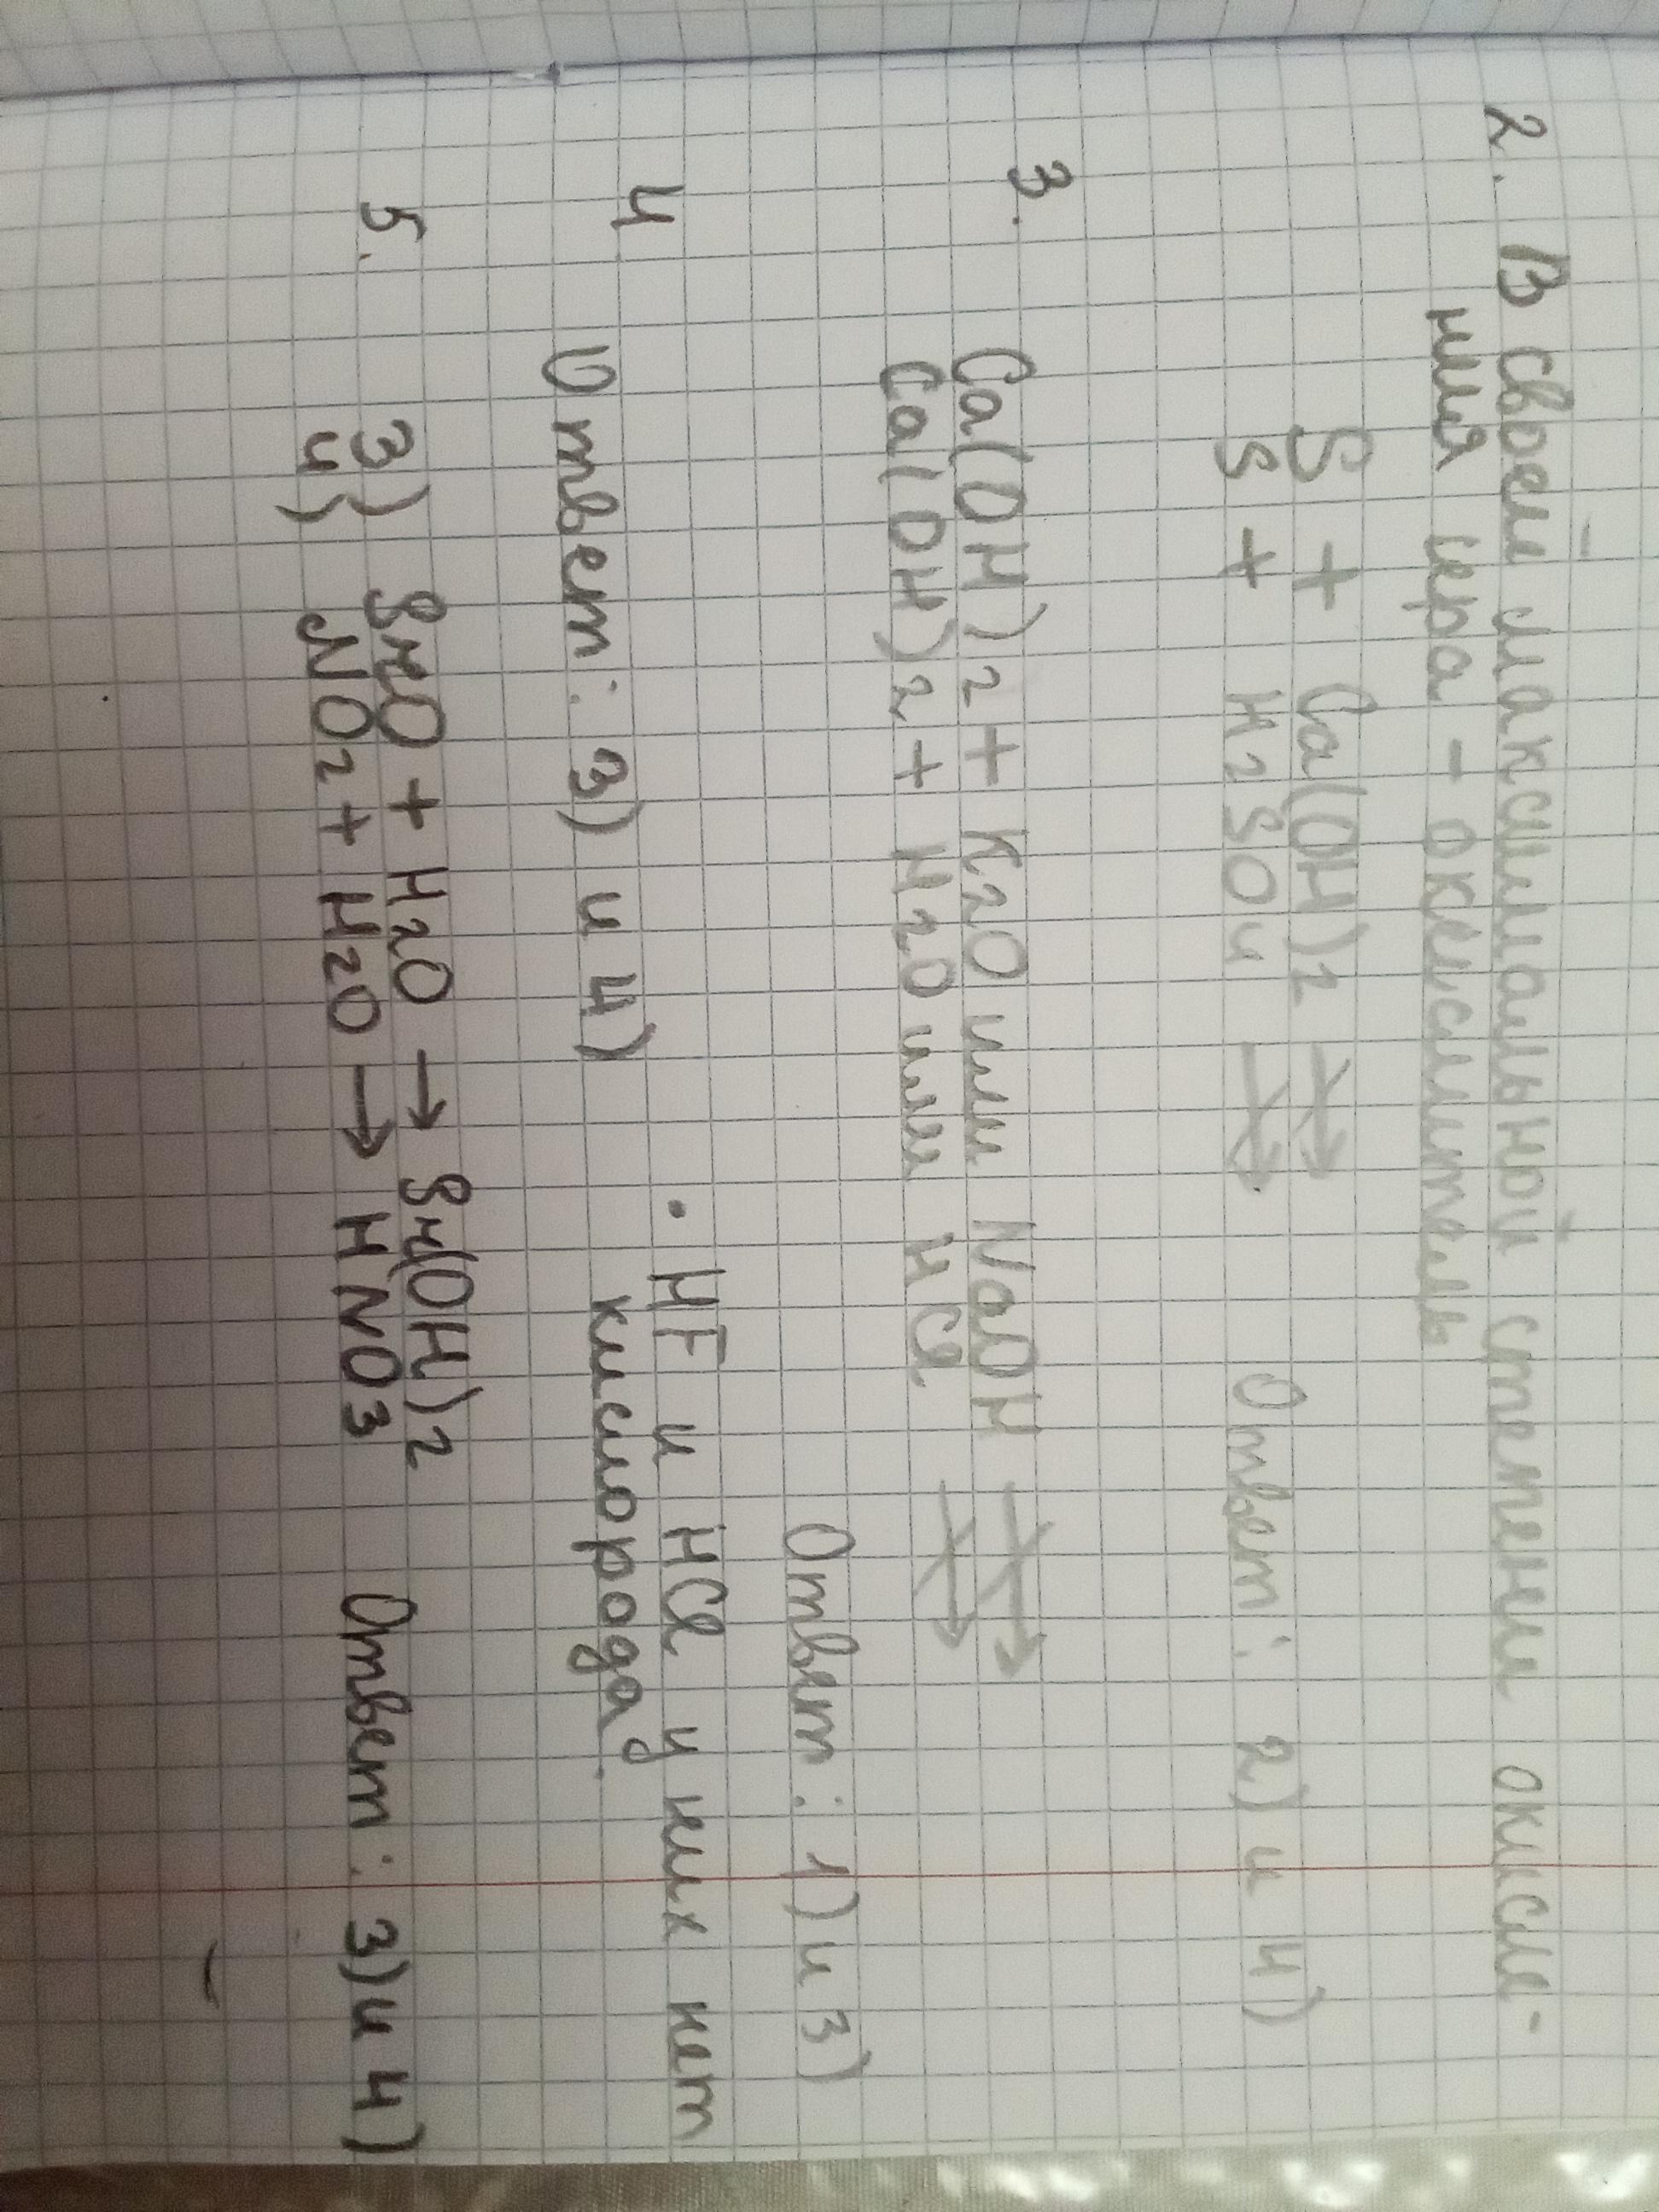 2. В своей максимальной степени окисле-
ния сера - окислитель
S + Ca(OH)2 ↛
S + H2SO4 ↛ Ответ: 2) и 4)
3.
Ca(OH)2 + K2O или NaOH ↛
Ca(OH)2 + H2O или HCl ↛
Ответ: 1) и 3)
4 • HF и HCl у них нет
кислорода.
Ответ: 3) и 4)
5. 3) SrO + H2O → Sr(OH)2
4) NO2 + H2O → HNO3 Ответ: 3) и 4)